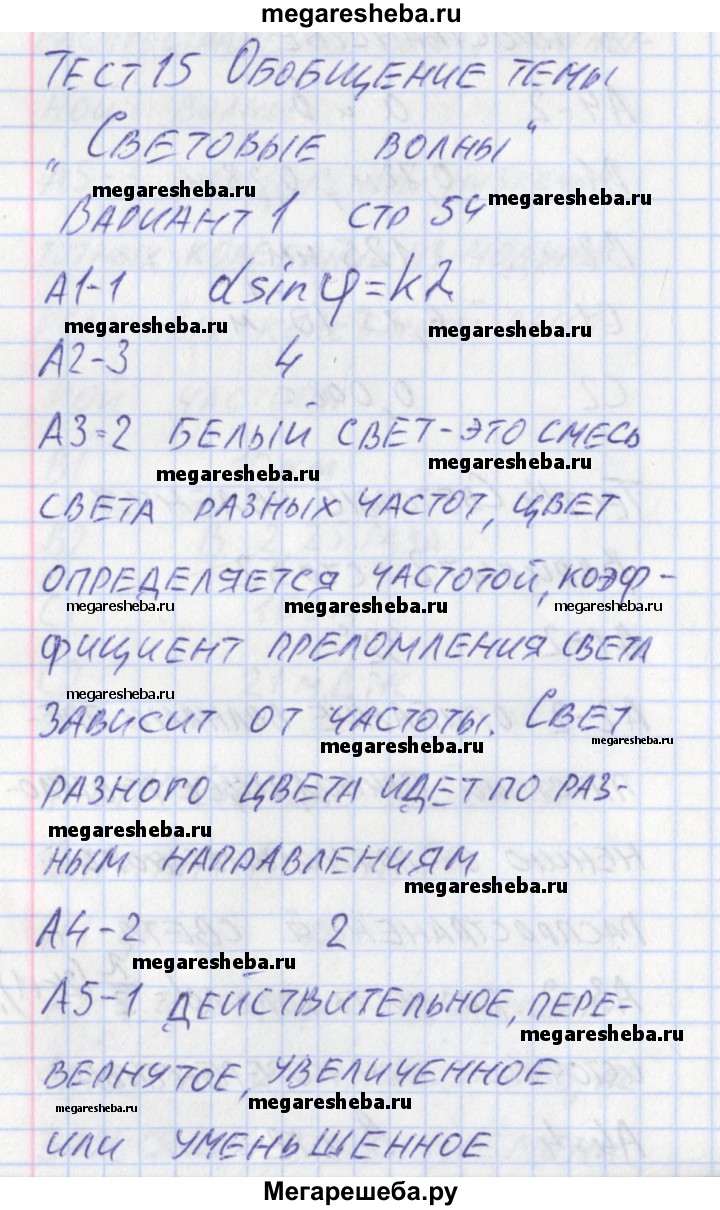 megaresheba.ru
Тест 15 Обобщение темы
"Световые волны"
megaresheba.ru megaresheba.ru
Вариант 1 стр 54
А1-1 dsinφ=kλ
megaresheba.ru megaresheba.ru
А2-3 4
А3=2 Белый свет-это смесь
megaresheba.ru megaresheba.ru
света разных частот, цвет
определяется частотой, коэф-
megaresheba.ru megaresheba.ru megaresheba.ru
фициент преломления света
megaresheba.ru
зависит от частоты. Свет
megaresheba.ru megaresheba.ru
разного цвета идет по раз-
megaresheba.ru
ным направлениям
megaresheba.ru
А4-2 2
megaresheba.ru
А5-1 действительное, пере-
megaresheba.ru
вернутое, увеличенное
megaresheba.ru megaresheba.ru
или уменьшенное
Мегарешеба.ру